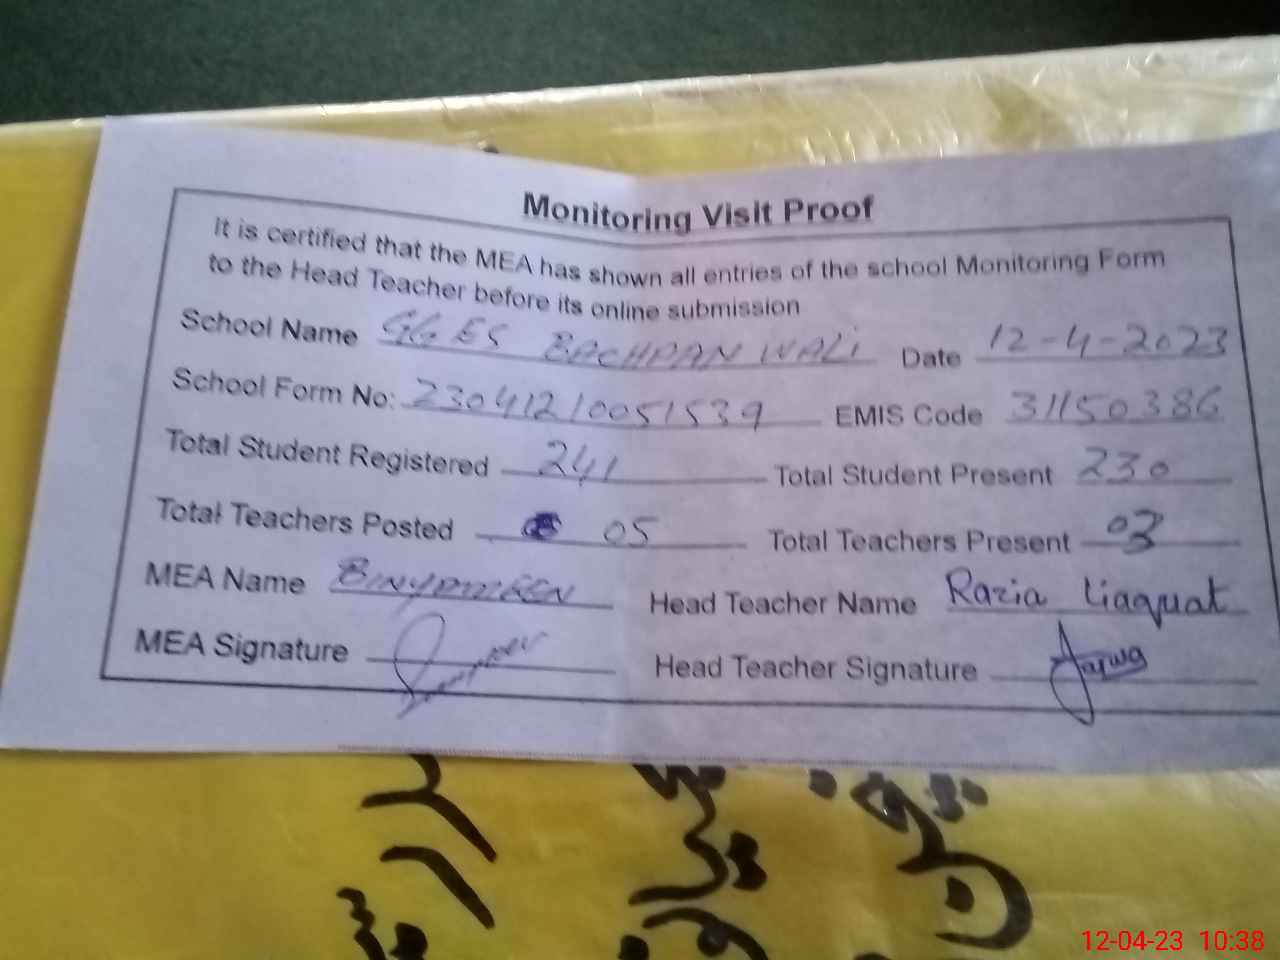 Monitoring Visit Proof
It is certified that the MEA has shown all entries of the school Monitoring Form
to the Head Teacher before its online submission
School Name GGES BACHPAN WALI Date 12-4-2023
School Form No: 23041210051539 EMIS Code 31150386
Total Student Registered 241 Total Student Present 230
Total Teachers Posted 05 Total Teachers Present 03
MEA Name BINYAMEEN Head Teacher Name Razia Liaquat
MEA Signature Head Teacher Signature
12-04-23 10:38